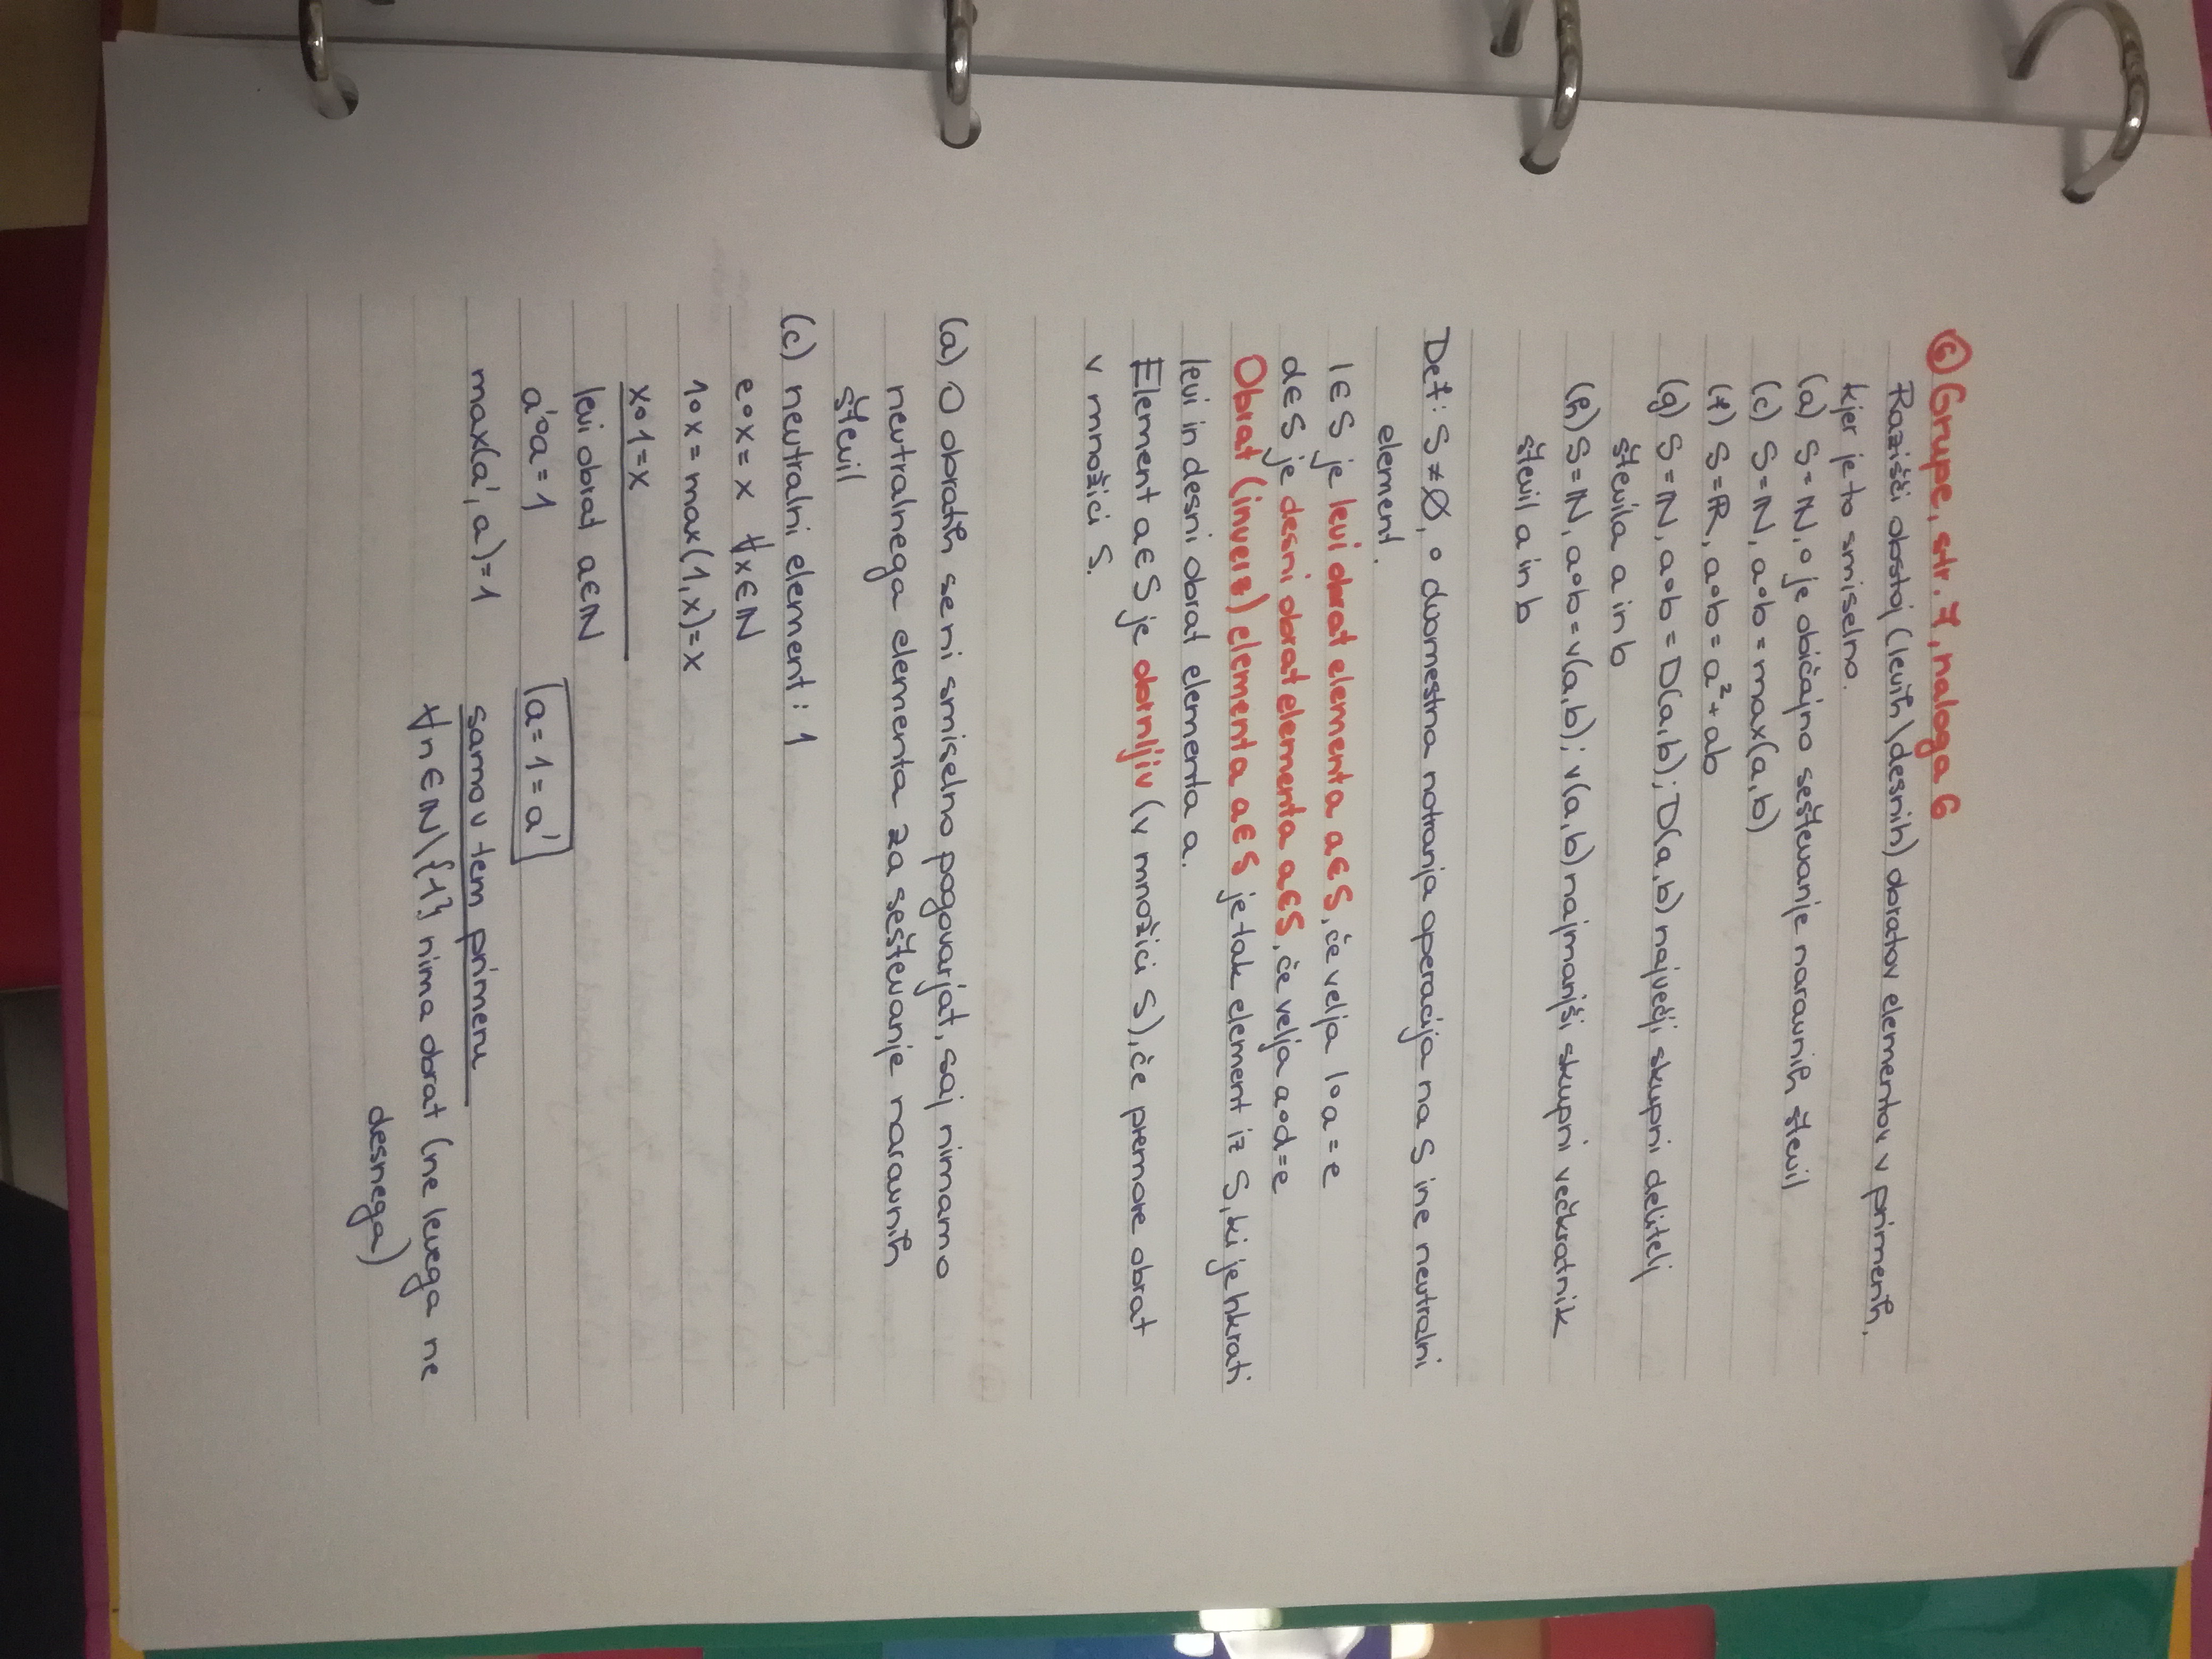 ⑥ Grupe, str. 7, naloga 6
Razišči obstoj (levih\desnih) obratov elementov v primerih,
kjer je to smiselno.
(a) S=ℕ, ∘ je običajno seštevanje naravnih števil
(c) S=ℕ, a∘b = max(a,b)
(f) S=ℝ, a∘b = a²+ab
(g) S=ℕ, a∘b = D(a,b); D(a,b) največji skupni delitelj
števila a in b
(h) S=ℕ, a∘b = v(a,b); v(a,b) najmanjši skupni večkratnik
števil a in b
Def: S≠∅, ∘ dvomestna notranja operacija na S in e neutralni
element.
l∈S je levi obrat elementa a∈S, če velja l∘a = e
d∈S je desni obrat elementa a∈S, če velja a∘d=e
Obrat (inverz) elementa a∈S je tak element iz S, ki je hkrati
levi in desni obrat elementa a.
Element a∈S je obrnljiv (v množici S), če premore obrat
v množici S.
(a) O obratih se ni smiselno pogovarjat, saj nimamo
neutralnega elementa za seštevanje naravnih
števil
(c) neutralni element: 1
e∘x = x ∀x∈ℕ
1∘x = max(1,x)=x
x∘1=x
levi obrat a∈ℕ
a'∘a = 1 a=1=a'
max(a', a)=1 samo v tem primeru
∀n∈ℕ\{1} nima obrat (ne levega ne
desnega)